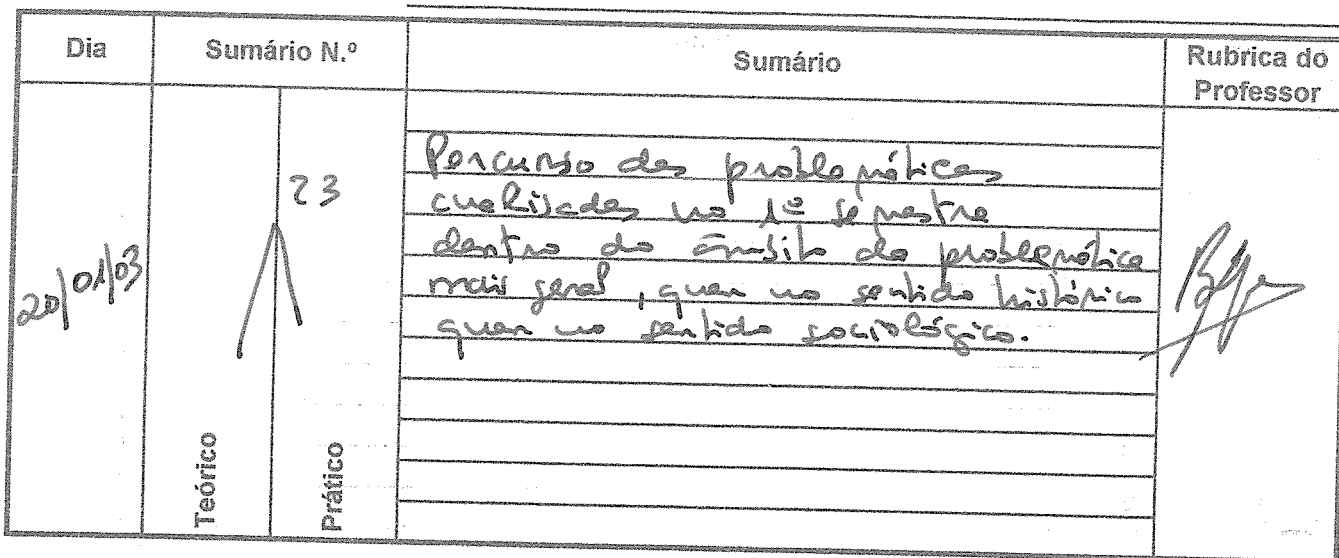 Dia
Sumário N.º
Sumário
Rubrica do
Professor
20/01/03
23
Percurso das problemáticas
analisadas no 1º semestre
dentro do âmbito da problemática
mais geral, quer no sentido histórico
quer no sentido sociológico.
Teórico
Prático